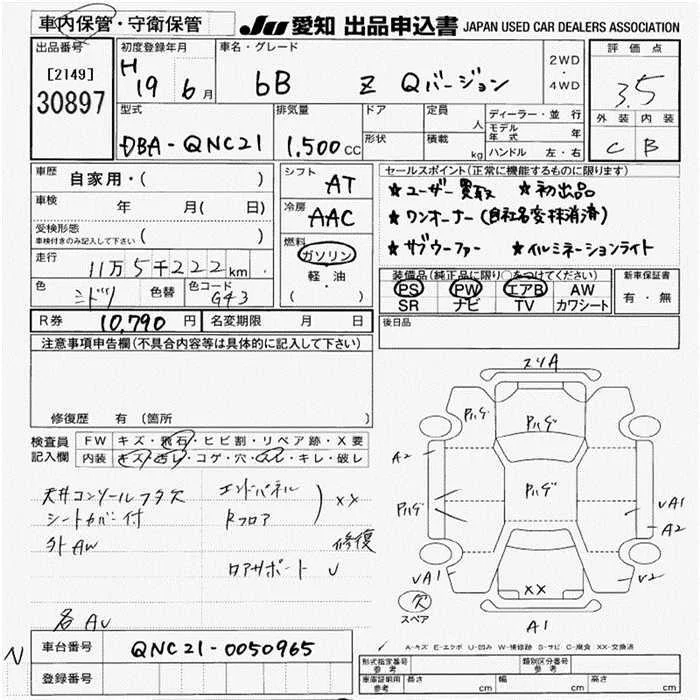 車内保管・守衛保管
JU 愛知 出品申込書 JAPAN USED CAR DEALERS ASSOCIATION
出品番号
[2149]
30897
初度登録年月
H 19 6 月
車名・グレード
bB Z Qバージョン
2WD
・
4WD
評価点
3.5
外装 内装
C B
型式
DBA-QNC21
排気量
1,500 CC
ドア
形状
定員
人
積載
kg
ディーラー・並行
モデル年式 年
ハンドル 左・右
車歴 自家用・( )
車検 年 月( 日)
受検形態
車検付きのみ記入して下さい ( )
走行
11万5千222 km
色 ミドリ 色替 色コード G43
シフト
AT
冷房
AAC
燃料
ガソリン
軽・油
( )
セールスポイント(正常に機能するものに限ります)
★ユーザー買取 ★初出品
★ワンオーナー(自社名変抹消済)
★サブウーファー ★イルミネーションライト
装備品(純正品に限り○をつけてください)
PS PW エアB AW
SR ナビ TV カワシート
新車保証書
有・無
R券 10,790 円 名変期限 月 日
後日品
注意事項申告欄(不具合内容等は具体的に記入して下さい)
修復歴 有(箇所
検査員記入欄
FW キズ・飛石・ヒビ割・リペア跡・X要
内装 キズ・汚レ・コゲ・穴・スレ・キレ・破レ
天井コンソールフタ欠
シートカバー付
外AW
エンドパネル
Rフロア
XX
修復
コアサポート U
名AU
スリA
Pハゲ
Pハゲ
A2
Pハゲ
Pハゲ
UA1
A2
UA1
U2
XX
欠
スペア
A1
A-キズ E-エクボ U-凹み W-補修跡 S-サビ C-腐食 XX-交換済
N
車台番号 QNC21-0050965
登録番号
形式指定番号 参考
類別区分番号 参考
車庫証明用 参考 長さ cm 幅 cm 高さ cm